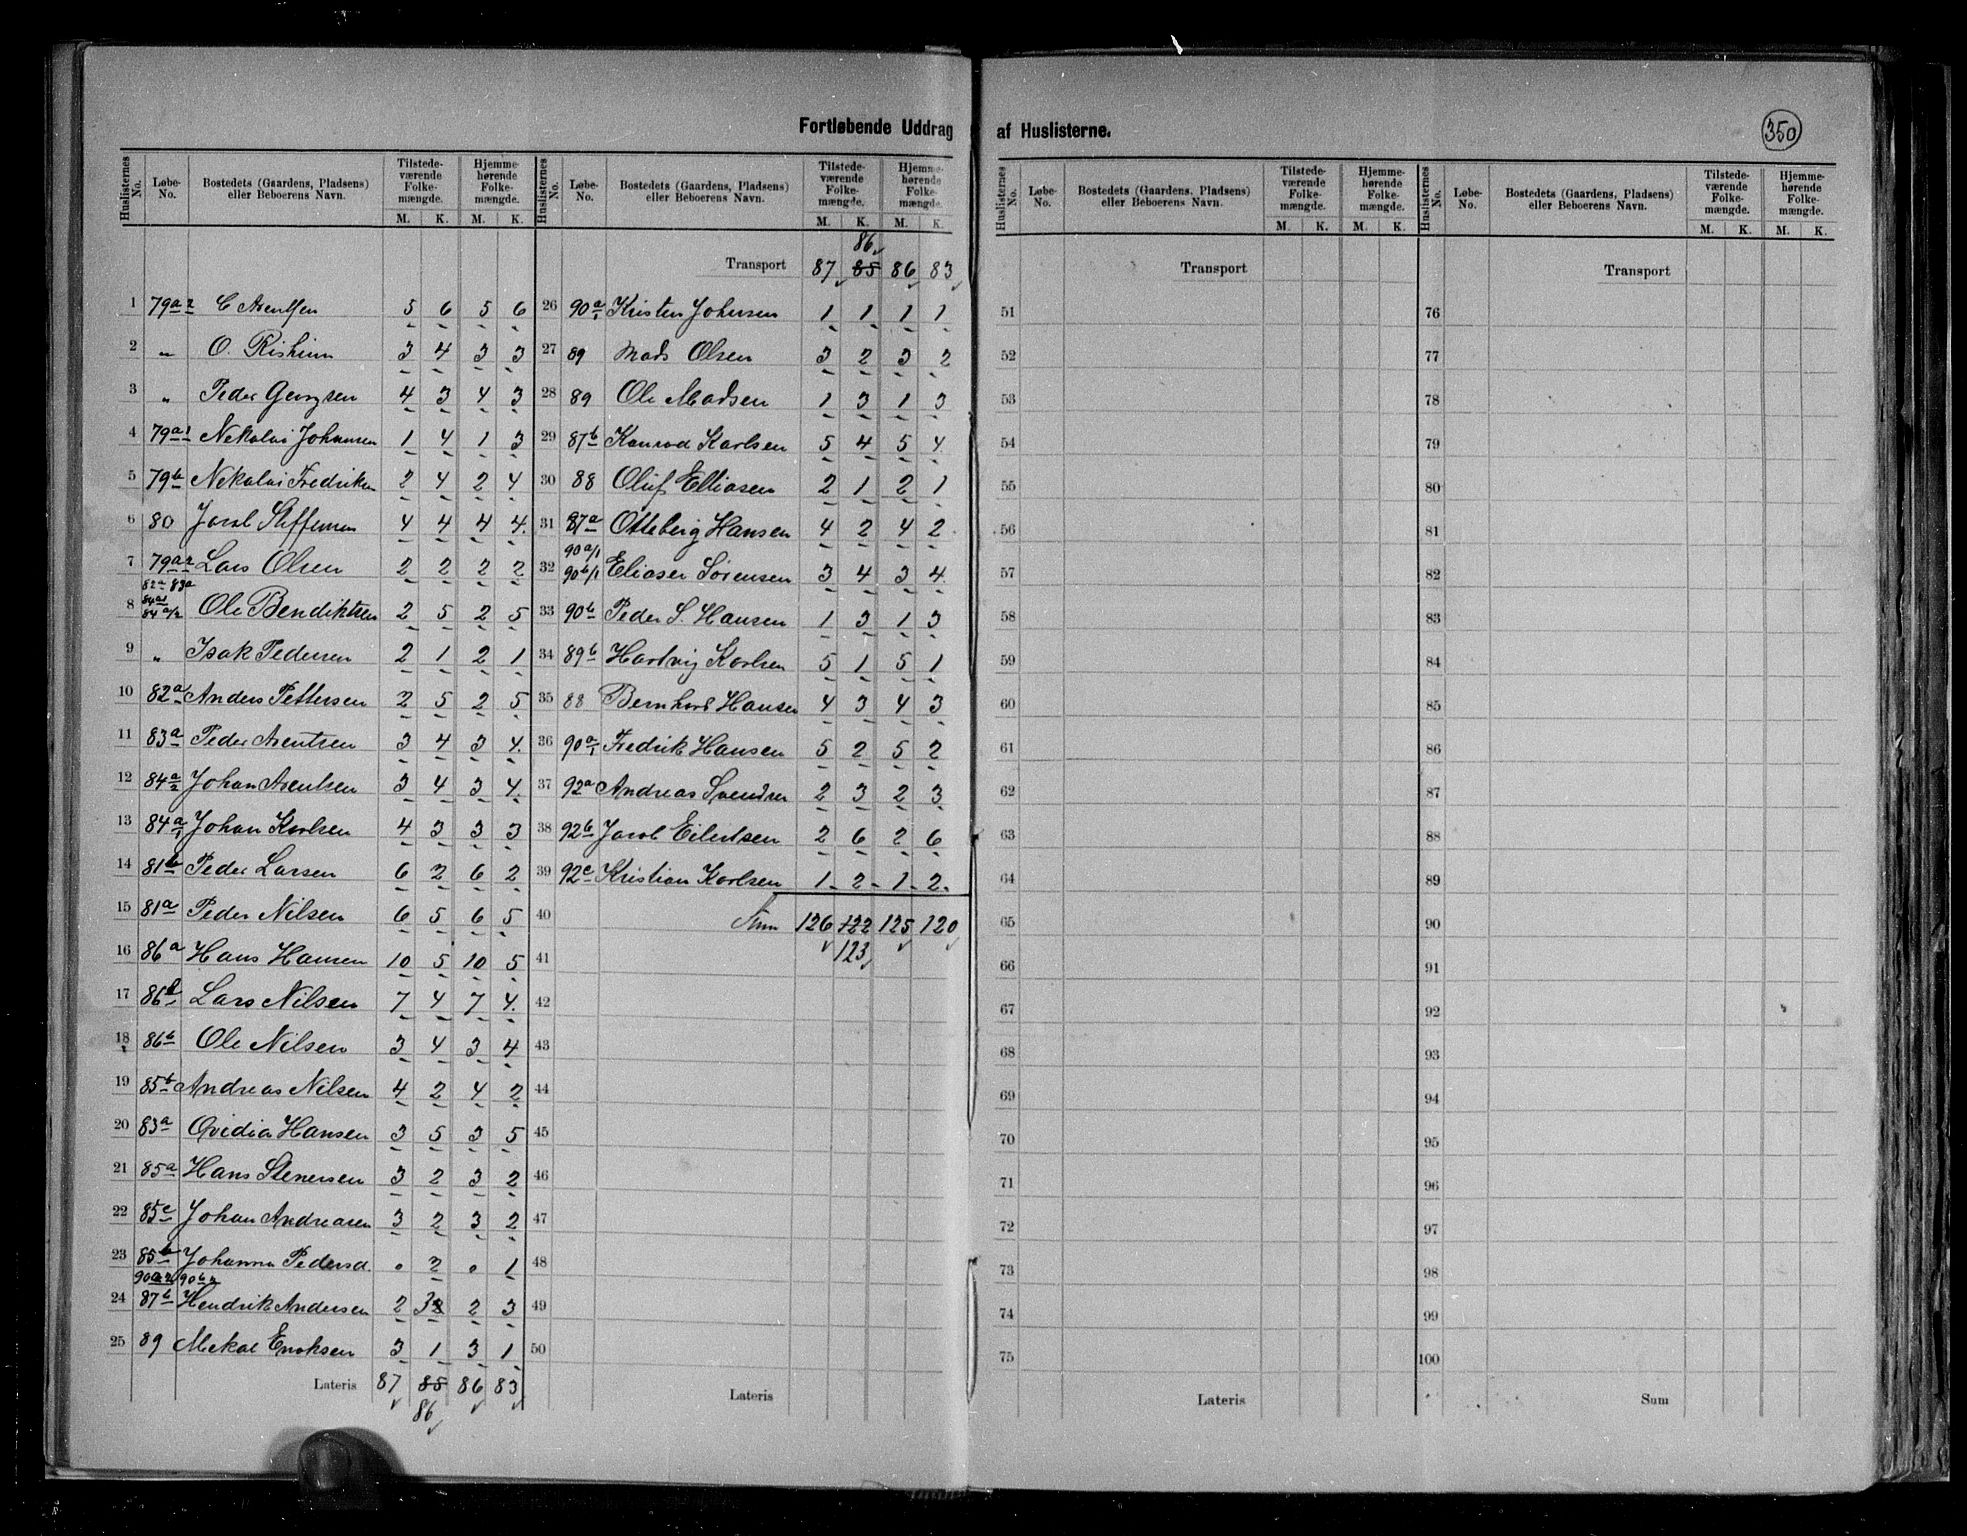 Fortløbende Uddrag af Huslisterne.
350
Huslisternes No. | Løbe-No. | Bostedets (Gaardens, Pladsens) eller Beboerens Navn. | Tilstedeværende Folkemængde. M. K. | Hjemmehørende Folkemængde. M. K.
1 79a2 C Arentsen 5 6 5 6
2 " O. 3 4 3 3
3 " Peder Georgsen 4 3 4 3
4 79a1 Nekolai Johansen 1 4 1 3
5 79b Nekolai Fredriksen 2 4 2 4
6 80 Jacob Steffensen 4 4 4 4.
7 79a2 Lars Olsen 2 2 2 2
82a 83a
8 84a1 84a/2 Ole Bendiktsen 2 5 2 5
9 " Isak Pedersen 2 1 2 1
10 82a Anders Pettersen 2 5 2 5
11 83a Peder Arentsen 3 4 3 4.
12 84a2 Johan Arentsen 3 4 3 4.
13 84a1 Johan Karlsen 4 3 3 3
14 81b Peder Larsen 6 2 6 2
15 81a Peder Nilsen 6 5 6 5
16 86a Hans Hansen 10 5 10 5
17 86 Lars Nilsen 7 4 7 4.
18 86b Ole Nilsen 3 4 3 4
19 85b Andreas Nilsen 4 2 4 2
20 83a Ovidia Hansen 3 5 3 5
21 85a Hans Stenersen 3 2 3 2
22 85c Johan Andreasen 3 2 3 2
23 85b Johanna Pedersd. 0 2 0 1
90a2 90b2
24 87b Hendrik Andersen 2 3 2 3
25 89 Mekal Enoksen 3 1 3 1
Lateris 87 85 86 83
86
Huslisternes No. | Løbe-No. | Bostedets (Gaardens, Pladsens) eller Beboerens Navn. | Tilstedeværende Folkemængde. M. K. | Hjemmehørende Folkemængde. M. K.
86
Transport 87 85 86 83
26 90a1 Kristen Johnsen 1 1 1 1
27 89 Mads Olsen 3 2 3 2
28 89 Ole Madsen 1 3 1 3
29 87b Konrad Karlsen 5 4 5 4.
30 88 Oluf Elliasen 2 1 2 1
31 87a Otteberg Hansen 4 2 4 2
90a/1
32 90b/1 Eliaser Sørensen 3 4 3 4
33 90b Peder S. Hansen 1 3 1 3
34 89b Hartvig Karlsen 5 1 5 1
35 88 Bernhard Hansen 4 3 4 3
36 90a1 Fredrik Hansen 5 2 5 2
37 92a Andreas Svendsen 2 3 2 3
38 92b Jacob Eilertsen 2 6 2 6
39 92c Kristian Karlsen 1 2 1 2
40 Sum 126 122 125 120
41 123
42
43
44
45
46
47
48
49
50
Lateris
Huslisternes No. | Løbe-No. | Bostedets (Gaardens, Pladsens) eller Beboerens Navn. | Tilstedeværende Folkemængde. M. K. | Hjemmehørende Folkemængde. M. K.
Transport
51
52
53
54
55
56
57
58
59
60
61
62
63
64
65
66
67
68
69
70
71
72
73
74
75
Lateris
Huslisternes No. | Løbe-No. | Bostedets (Gaardens, Pladsens) eller Beboerens Navn. | Tilstedeværende Folkemængde. M. K. | Hjemmehørende Folkemængde. M. K.
Transport
76
77
78
79
80
81
82
83
84
85
86
87
88
89
90
91
92
93
94
95
96
97
98
99
100
Sum